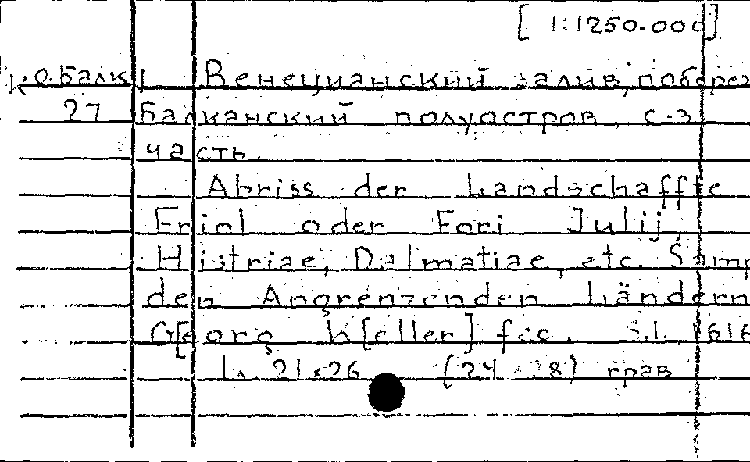 [ 1:1250.000]
К.О.Балк. Венецианский залив, побереж
27 Балканский полуостров, с-з
часть.
Abriss der Landschaffte
Friol oder Fori Julij,
Histriae, Dalmatiae, etc. Samp
den Angrenzenden Ländern
G[eorg K[eller] fec. S.l. 1616
1 л. 21×26 (24×28) грав